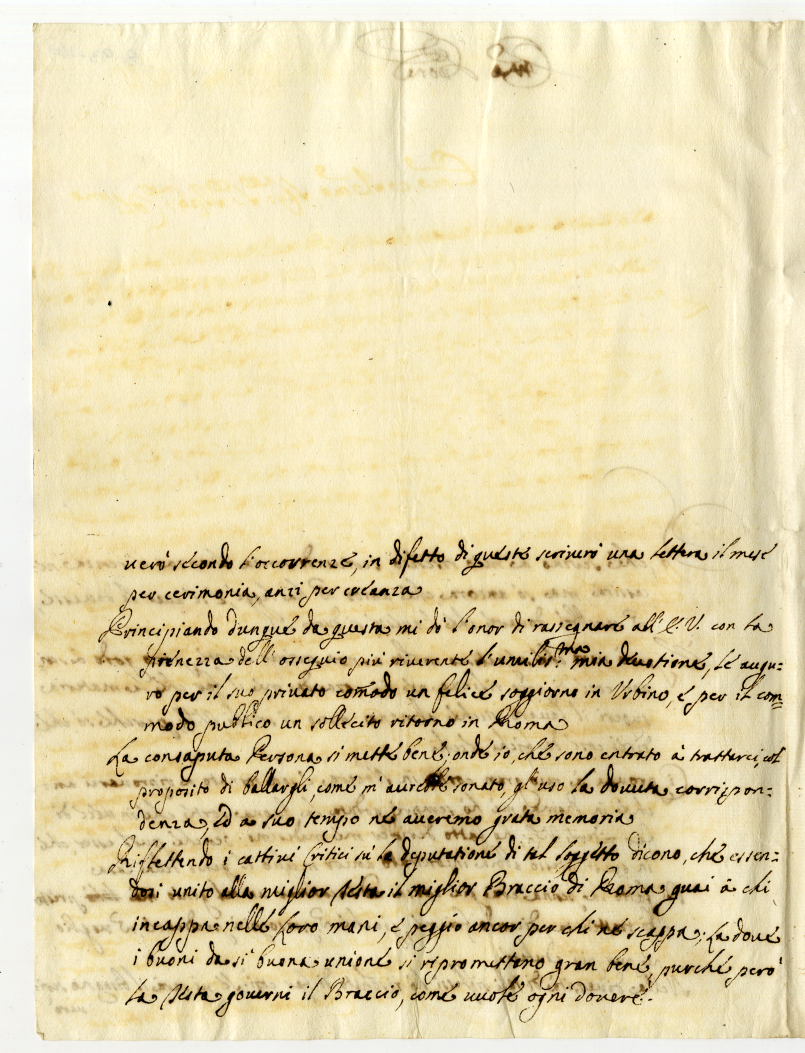 verò secondo l'occorrenze, in difetto di queste scriverò una lettera il mese
per cerimonia, anzi per creanza
Principiando dunque da questa mi dò l'onor di rassegnare all'E. V. con la
pienezza dell'ossequio più riverente l'umiliss.ma mia devotione, le augu=
ro per il suo privato comodo un felice soggiorno in Urbino, e per il com=
modo publico un sollecito ritorno in Roma
La consaputa Persona si mette bene; onde io, che sono entrato à trattarci, col
proposito di ballargli, come m'aurebbe sonato, gl'uso la dovuta corrispon=
denza, ed a suo tempo ne averemo grata memoria
Riflettendo i cattivi Critici sù la deputatione di tal soggetto dicono, che essen=
dosi unito alla miglior Testa il miglior Braccio di Roma guai à chi
incappa nelle loro mani, e peggio ancor per chi ne scappa; La dove
i buoni da sì buona unione si ripromettono gran bene, purche però
la Testa governi il Braccio, come vuole ogni dovere.